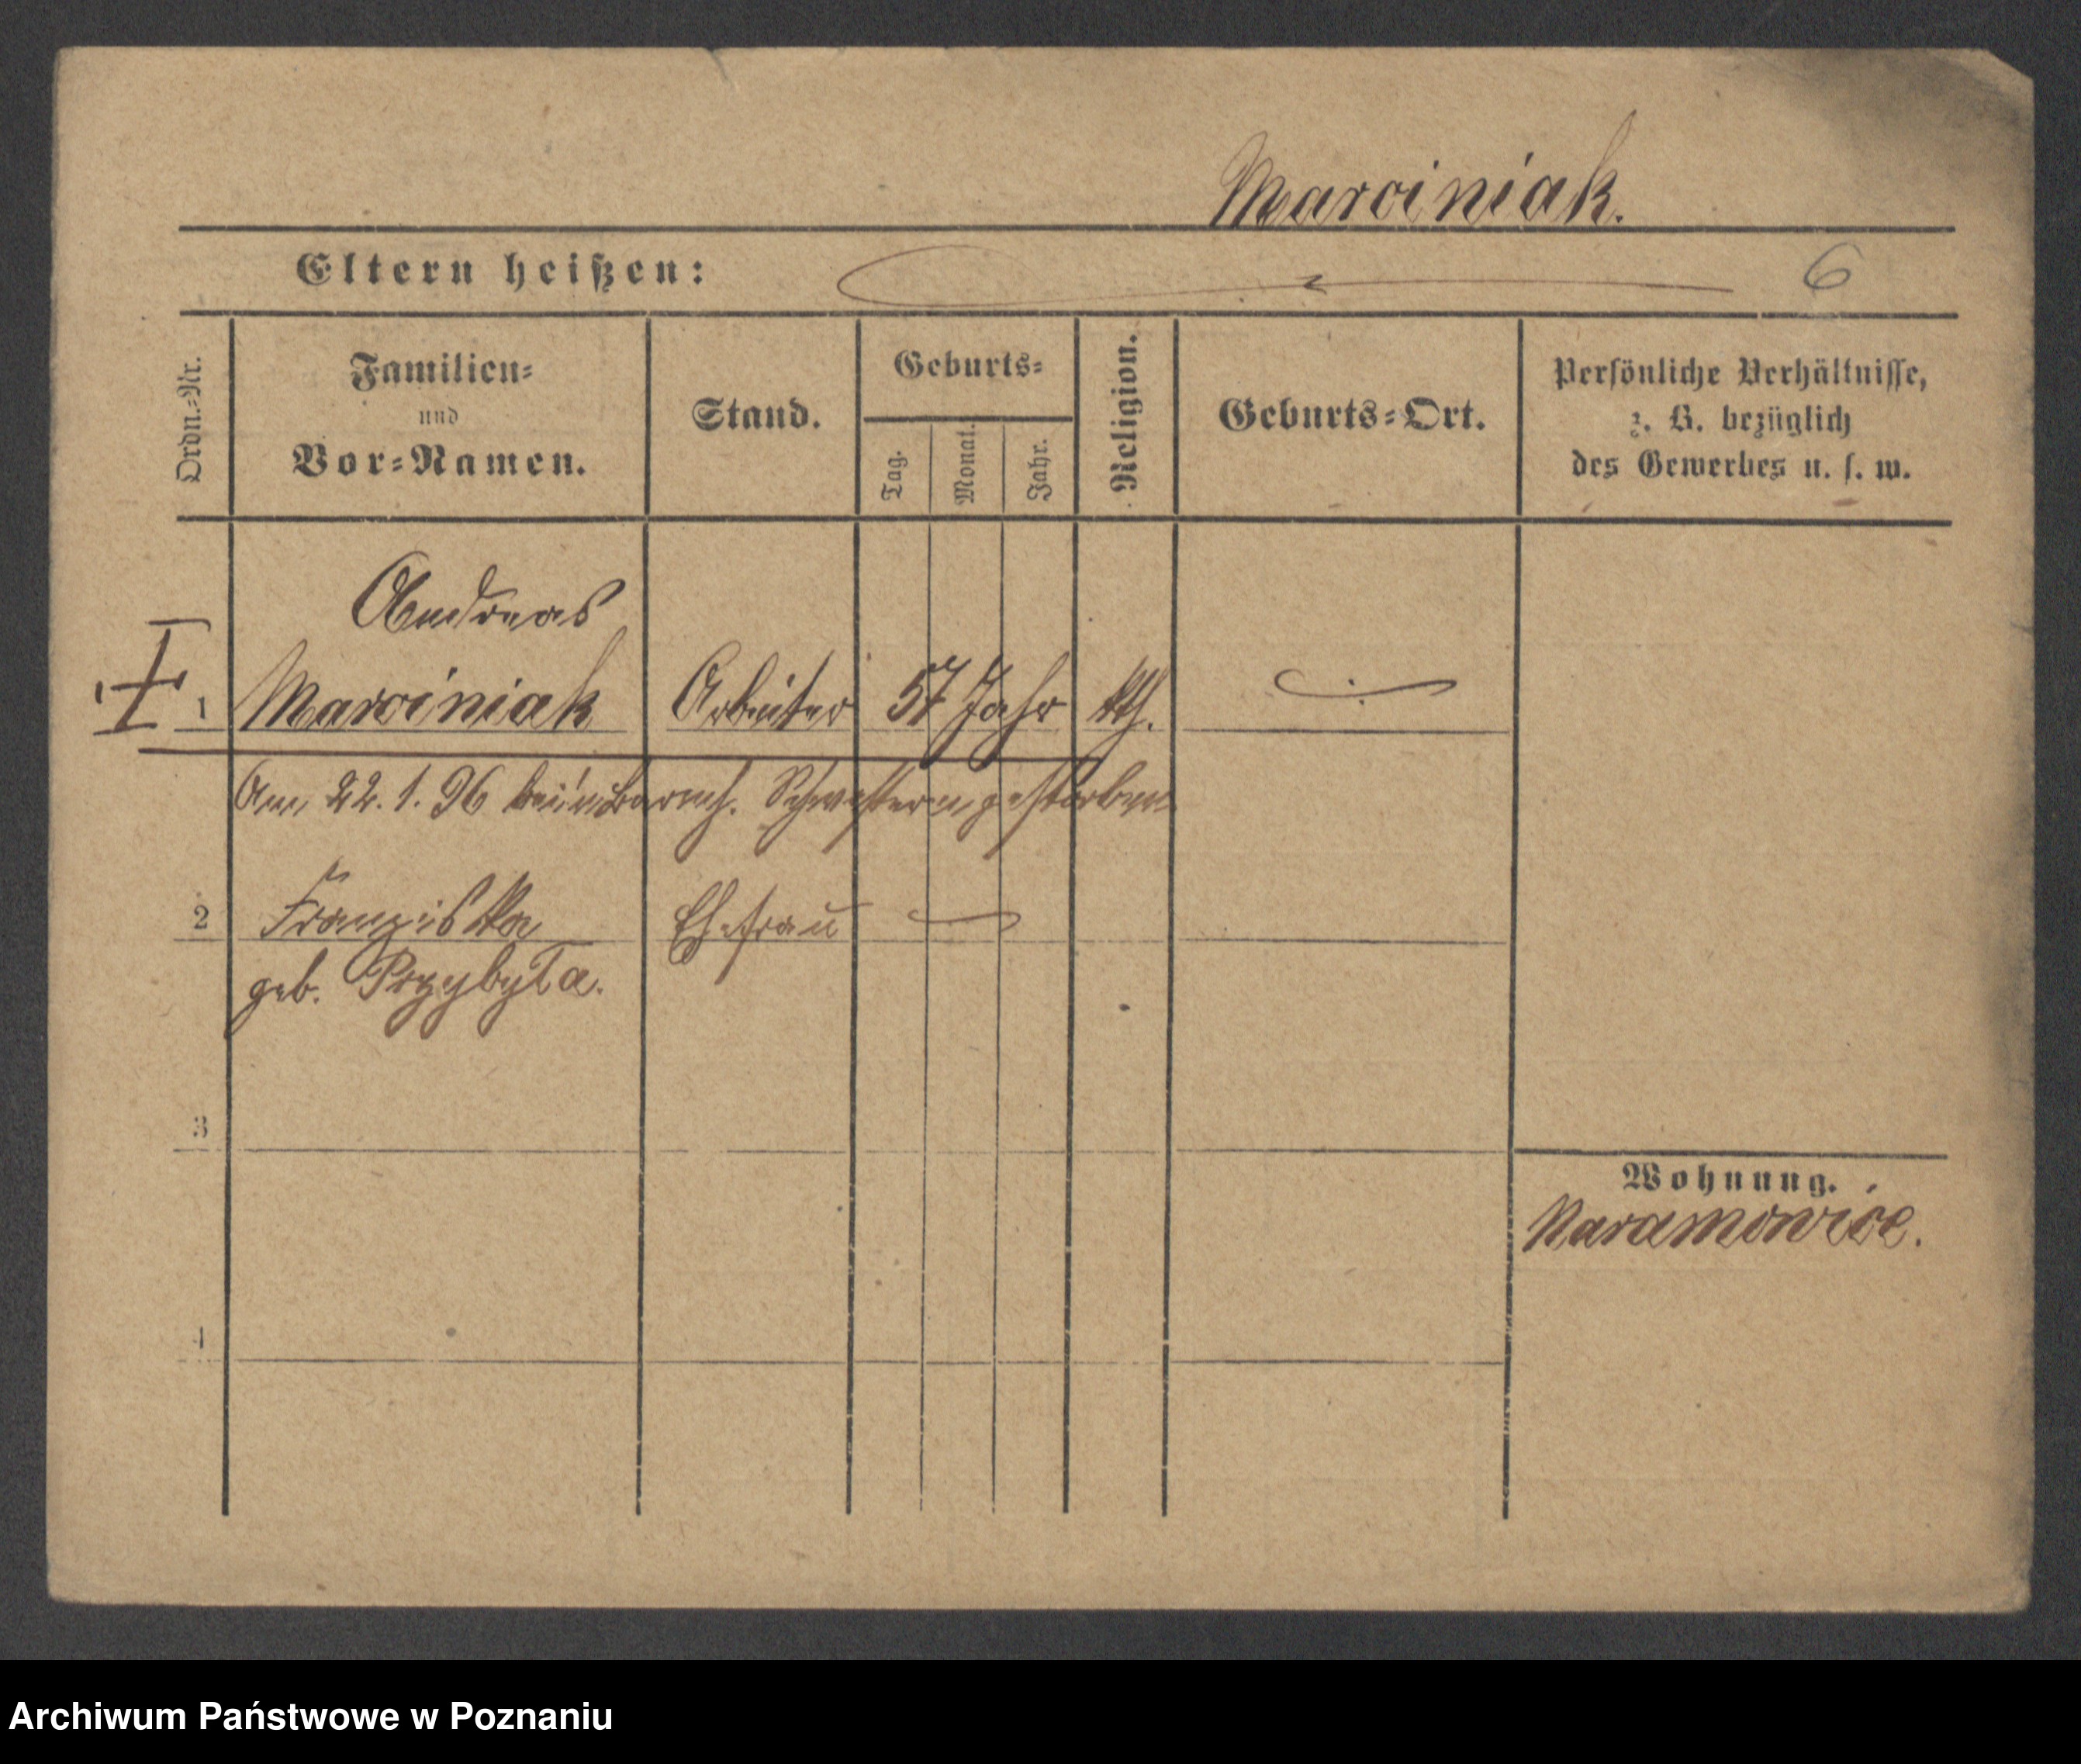 Marciniak.
Eltern heißen:
6
Ordn.-Nr.
Familien-
und
Vor-Namen.
Stand.
Geburts-
Tag.
Monat.
Jahr.
Religion.
Geburts-Ort.
Persönliche Verhältnisse,
z. B. bezüglich
des Gewerbes u. s. w.
Andreas
1 Marciniak Arbeiter 57 Jahr kth.
Am 22. 1. 96 bei barmh. Schwestern gestorben
2 Franziska Ehefrau
geb. Przybyła.
3
Wohnung.
Naramowice.
4
Archiwum Państwowe w Poznaniu